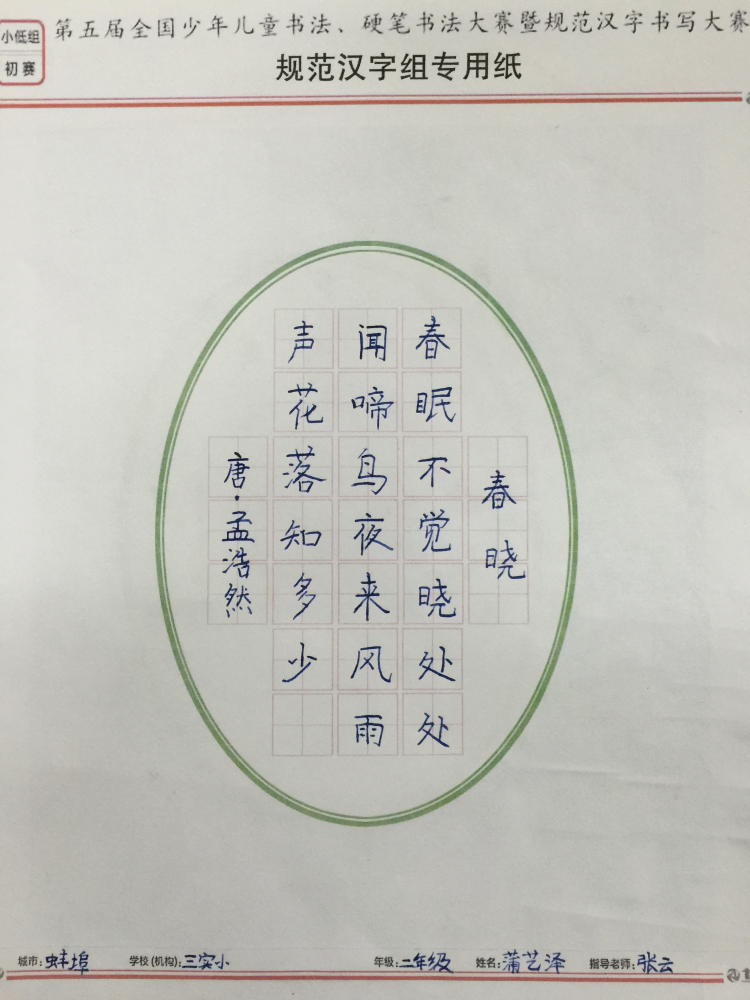 第五届全国少年儿童书法、硬笔书法大赛暨规范汉字书写大赛
小低组
初赛
规范汉字组专用纸
春晓
春眠不觉晓处处
闻啼鸟夜来风雨
声花落知多少
唐·孟浩然
城市:蚌埠 学校(机构):三实小 年级:二年级 姓名:蒲艺泽 指导老师:张云